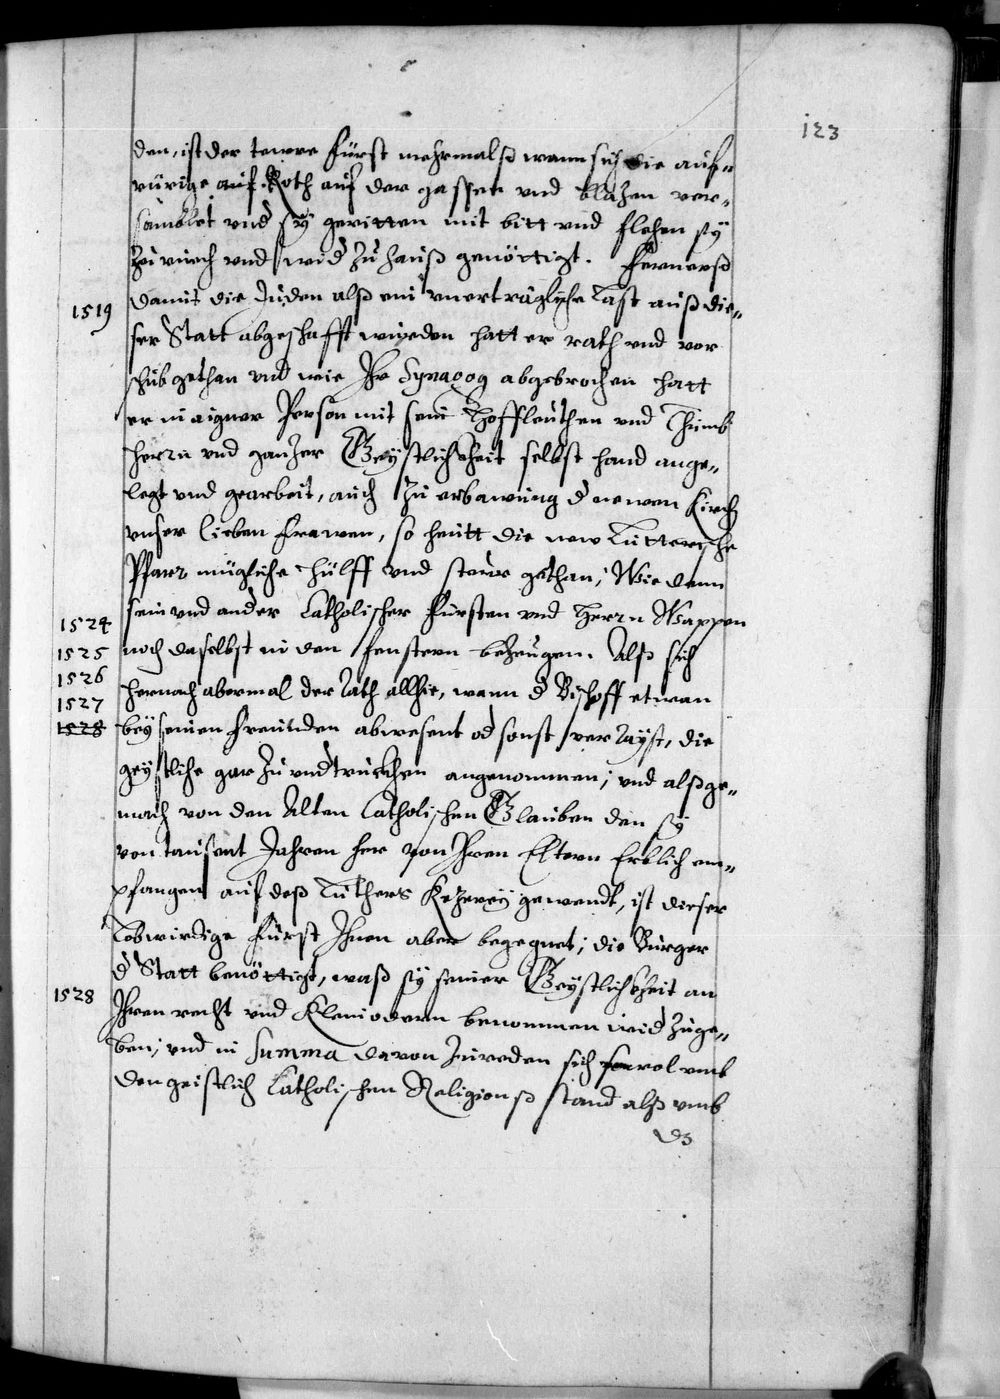 123
den, ist der tewre Fürst mehrmalß wann sich die auf-
rürige auf Roth auf der gassen vnd blazen ver-
samblet vnd sÿ geritten mit bitt vnd flehen sÿ
zu ruech vnd wid zu hauß genöttigt. Fernerß
1519 damit die Juden alß ein vnerträgliche Last auß die-
ser Statt abgeschafft wurden hatt er rath vnd vor
schub gethan vnd wie Ihr Synagog abgebrochen hatt
er in aigner Person mit sein Hoffleuthen vnd Thumb
herrn vnd ganzer Geystlichkheit selbst hand ange-
legt vnd gearbeit, auch zu erbawung d newen Kirch
vnser lieben Frawen, so heutt die new Lutterische
Pfarr mügliche Hülff vnd steur gethan, Wie dann
1524 sein vnd ander Catholischer Fürsten vnd Herrn Wappen
1525 noch daselbst in den fenstern bezeugen. Alß sich
1526 hernach abermal der Rath allhie, wann d Bischoff etwan
1527
1528 bey seinen Freunden abwesent od sonst verrayst, die
geystliche gar zu vndtruckhen angenommen, vnd alßge-
mach von den Alten Catholischen Glauben den sÿ
von tausent Jahren her von Ihren Eltern Erblich em-
pfangen auf deß Luthers Kezerey gewendt, ist dieser
Lobwirdige Fürst Ihnen aber begegnet, die Burger
d Statt benöttigt, waß sÿ seiner Geystlichkheit an
1528 Ihren recht vnd Kleinodern benommen wid zuge-
ben, vnd in Summa davon zureden sich sowol vmb
den geistlich Catholischen Religionß stand alß vmb
dz